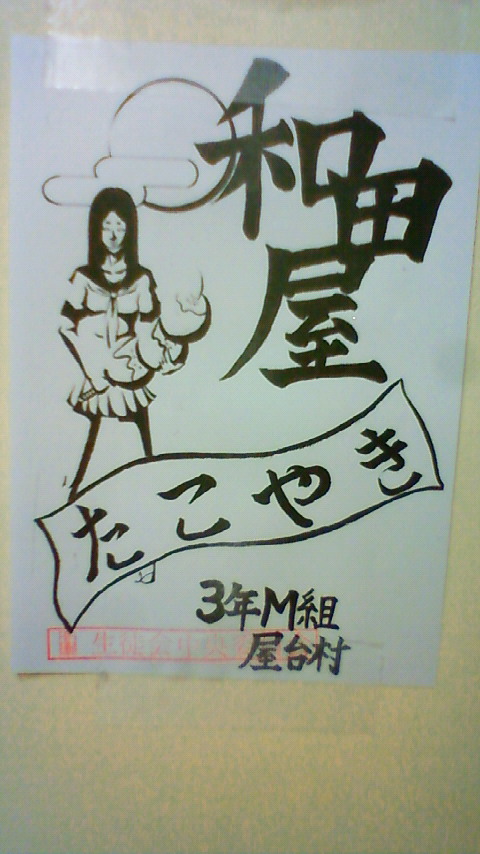 和田
屋
たこやき
3年M組
屋台村